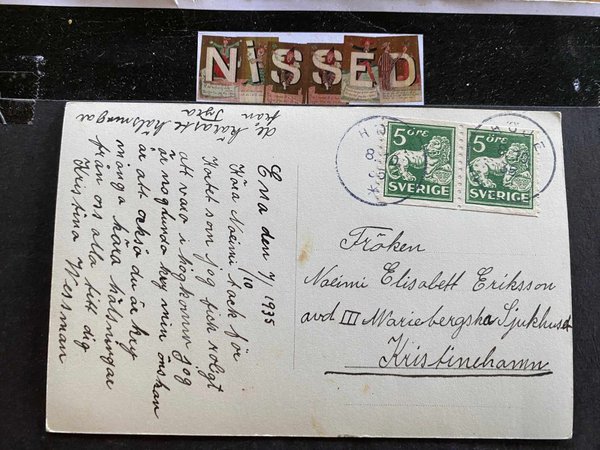 NISSED
de käraste hälsningar
från Tyra
Ena den 7/10 1935
Kära Noeimi tack för
Kortet som jag fick roligt
att vara i hogkommen jag
är någlunda kry min önskan
är att också du är kry
många kära hälsningar
från oss alla till dig
Kristina Wessman
5 ÖRE
SVERIGE
5 ÖRE
SVERIGE
Fröken
Noeimi Elisabett Eriksson
avd III Mariebergska Sjukhuset
Kristinehamn